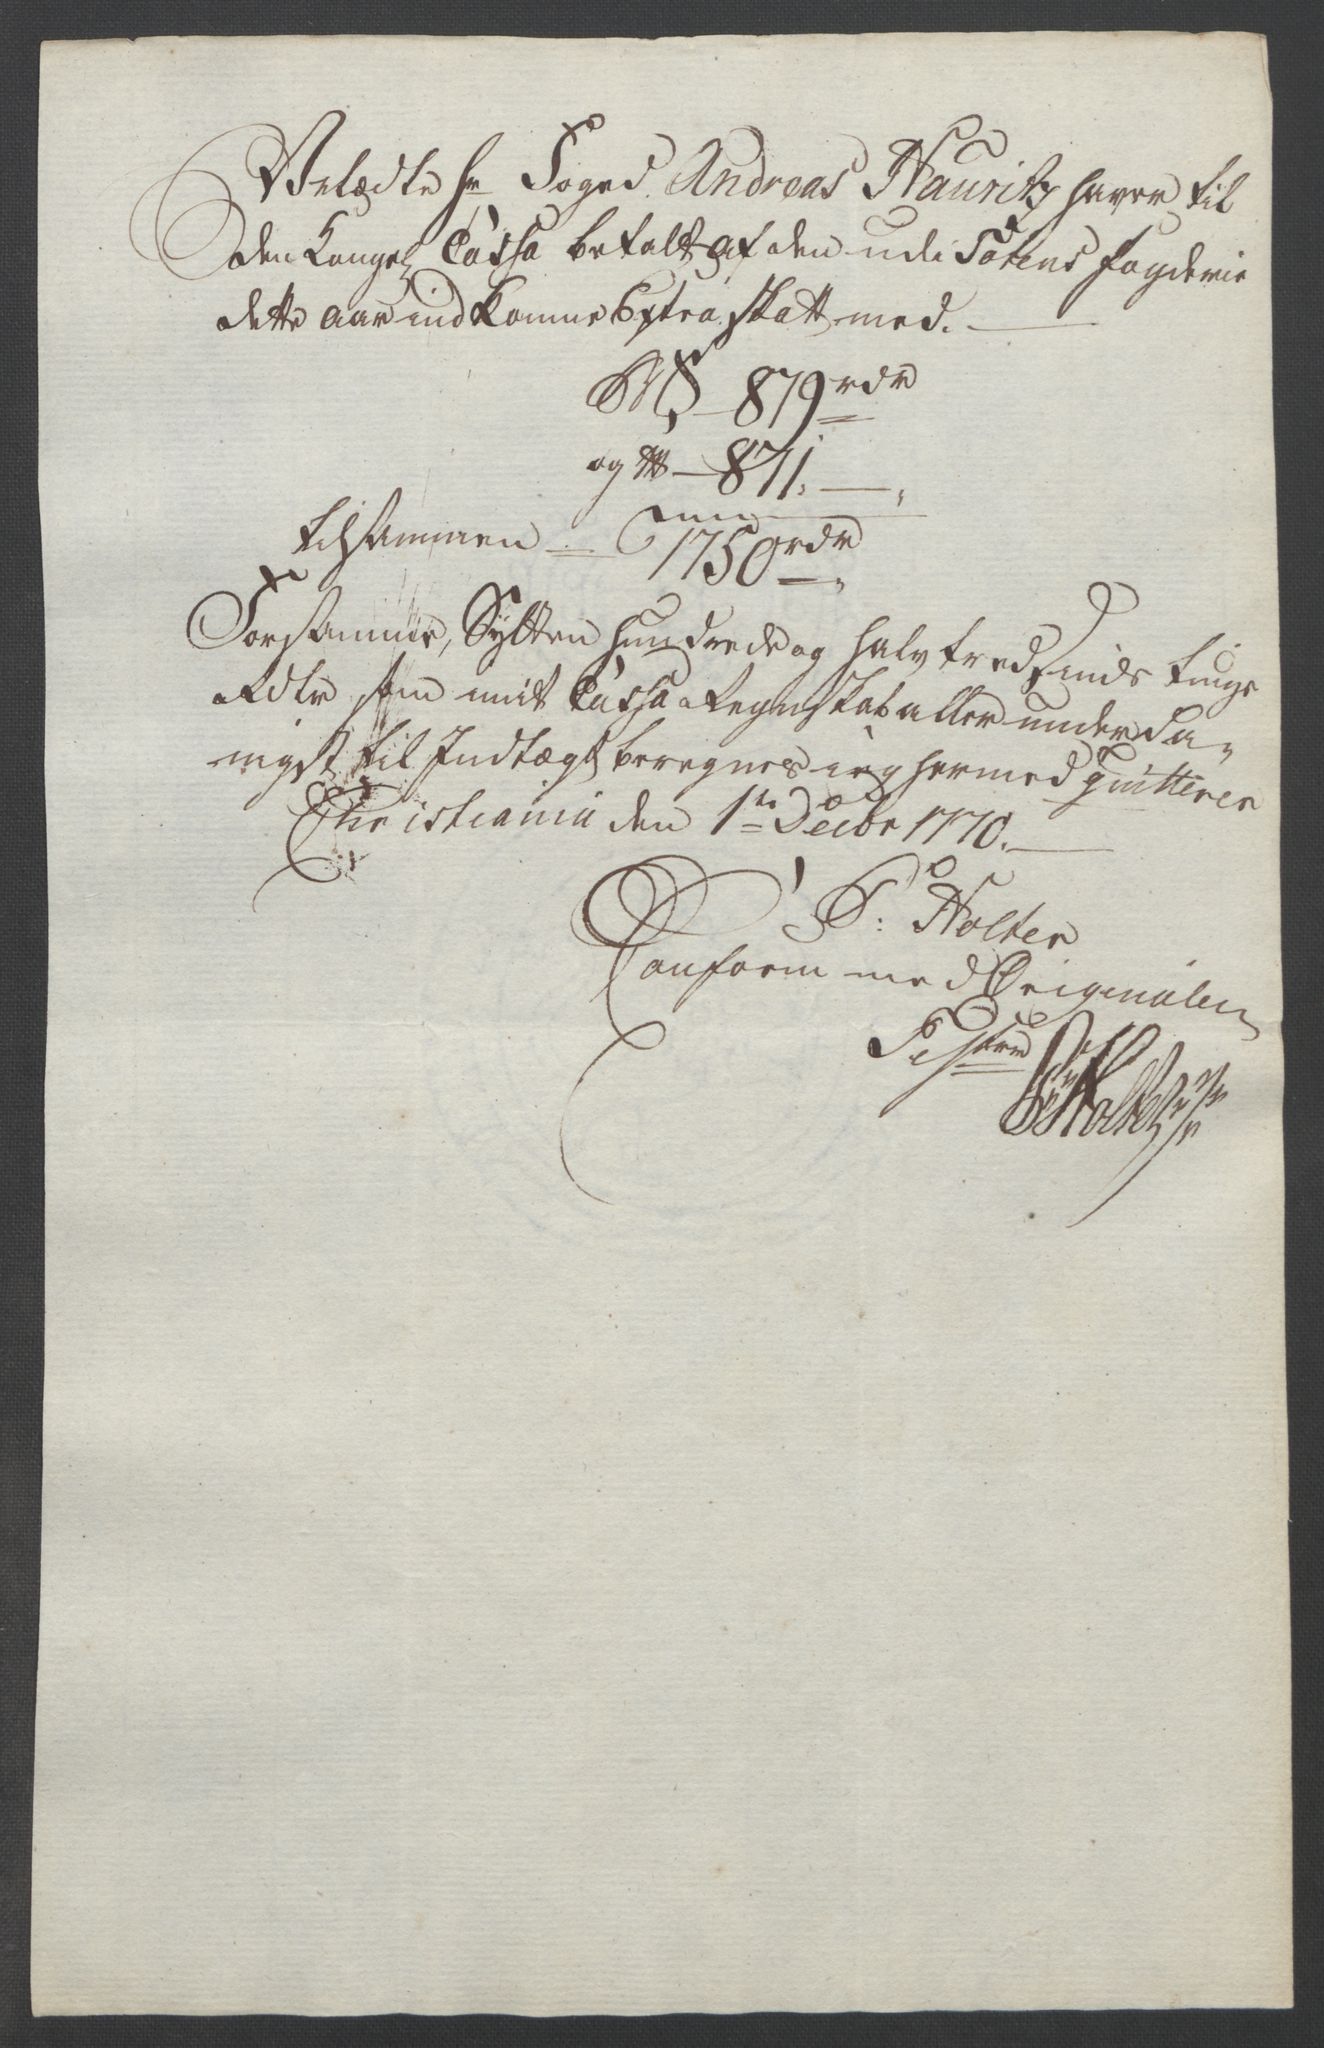 Velædle Hr Foged Andreas Hauritz haver til
den Kongel Cassa betalt af den udi Totens fogderie
dette aar indkomne Extra skatt med.
879 rdr
og 871.
tilsammen 1750 rdr
Forstamme, Sytten hundrede og halvtredsinds tiuge
Rdlr som mit Cassa Regnskab allerunderda-
nigst til Indtægt beregnes ieg hermed quitterer
Christiania den 1te Decbr 1770.
S: Holter
Conform med Originalen
Testerer
Holter